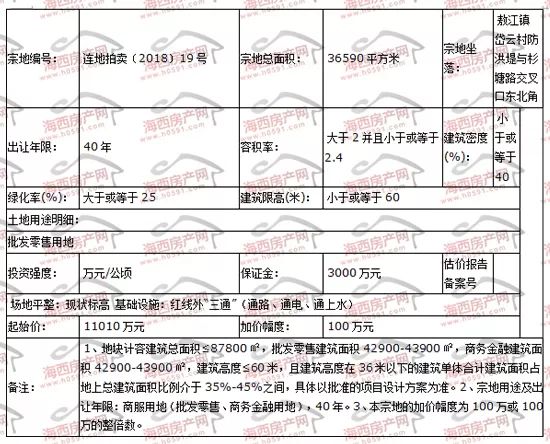 宗地编号: 连地拍卖（2018）19 号 宗地总面积: 36590 平方米 宗地坐落: 敖江镇岱云村防洪堤与杉塘路交叉口东北角
出让年限: 40 年 容积率: 大于 2 并且小于或等于 2.4 建筑密度(%): 小于或等于 40
绿化率(%): 大于或等于 25 建筑限高(米): 小于或等于 60
土地用途明细:
批发零售用地
投资强度: 万元/公顷 保证金: 3000 万元 估价报告备案号
场地平整: 现状标高 基础设施: 红线外“三通”（通路、通电、通上水）
起始价: 11010 万元 加价幅度: 100 万元
备注: 1、地块计容建筑总面积≤87800 ㎡，批发零售建筑面积 42900-43900 ㎡，商务金融建筑面
积 42900-43900 ㎡，建筑高度≤60 米，且建筑高度在 36 米以下的建筑单体合计建筑面积占
地上总建筑面积比例介于 35%-45%之间，具体以批准的项目设计方案为准。2、宗地用途及出
让年限: 商服用地（批发零售、商务金融用地），40 年。3、本宗地的加价幅度为 100 万或 100
万的整倍数。
海西房产网
www.h0591.com